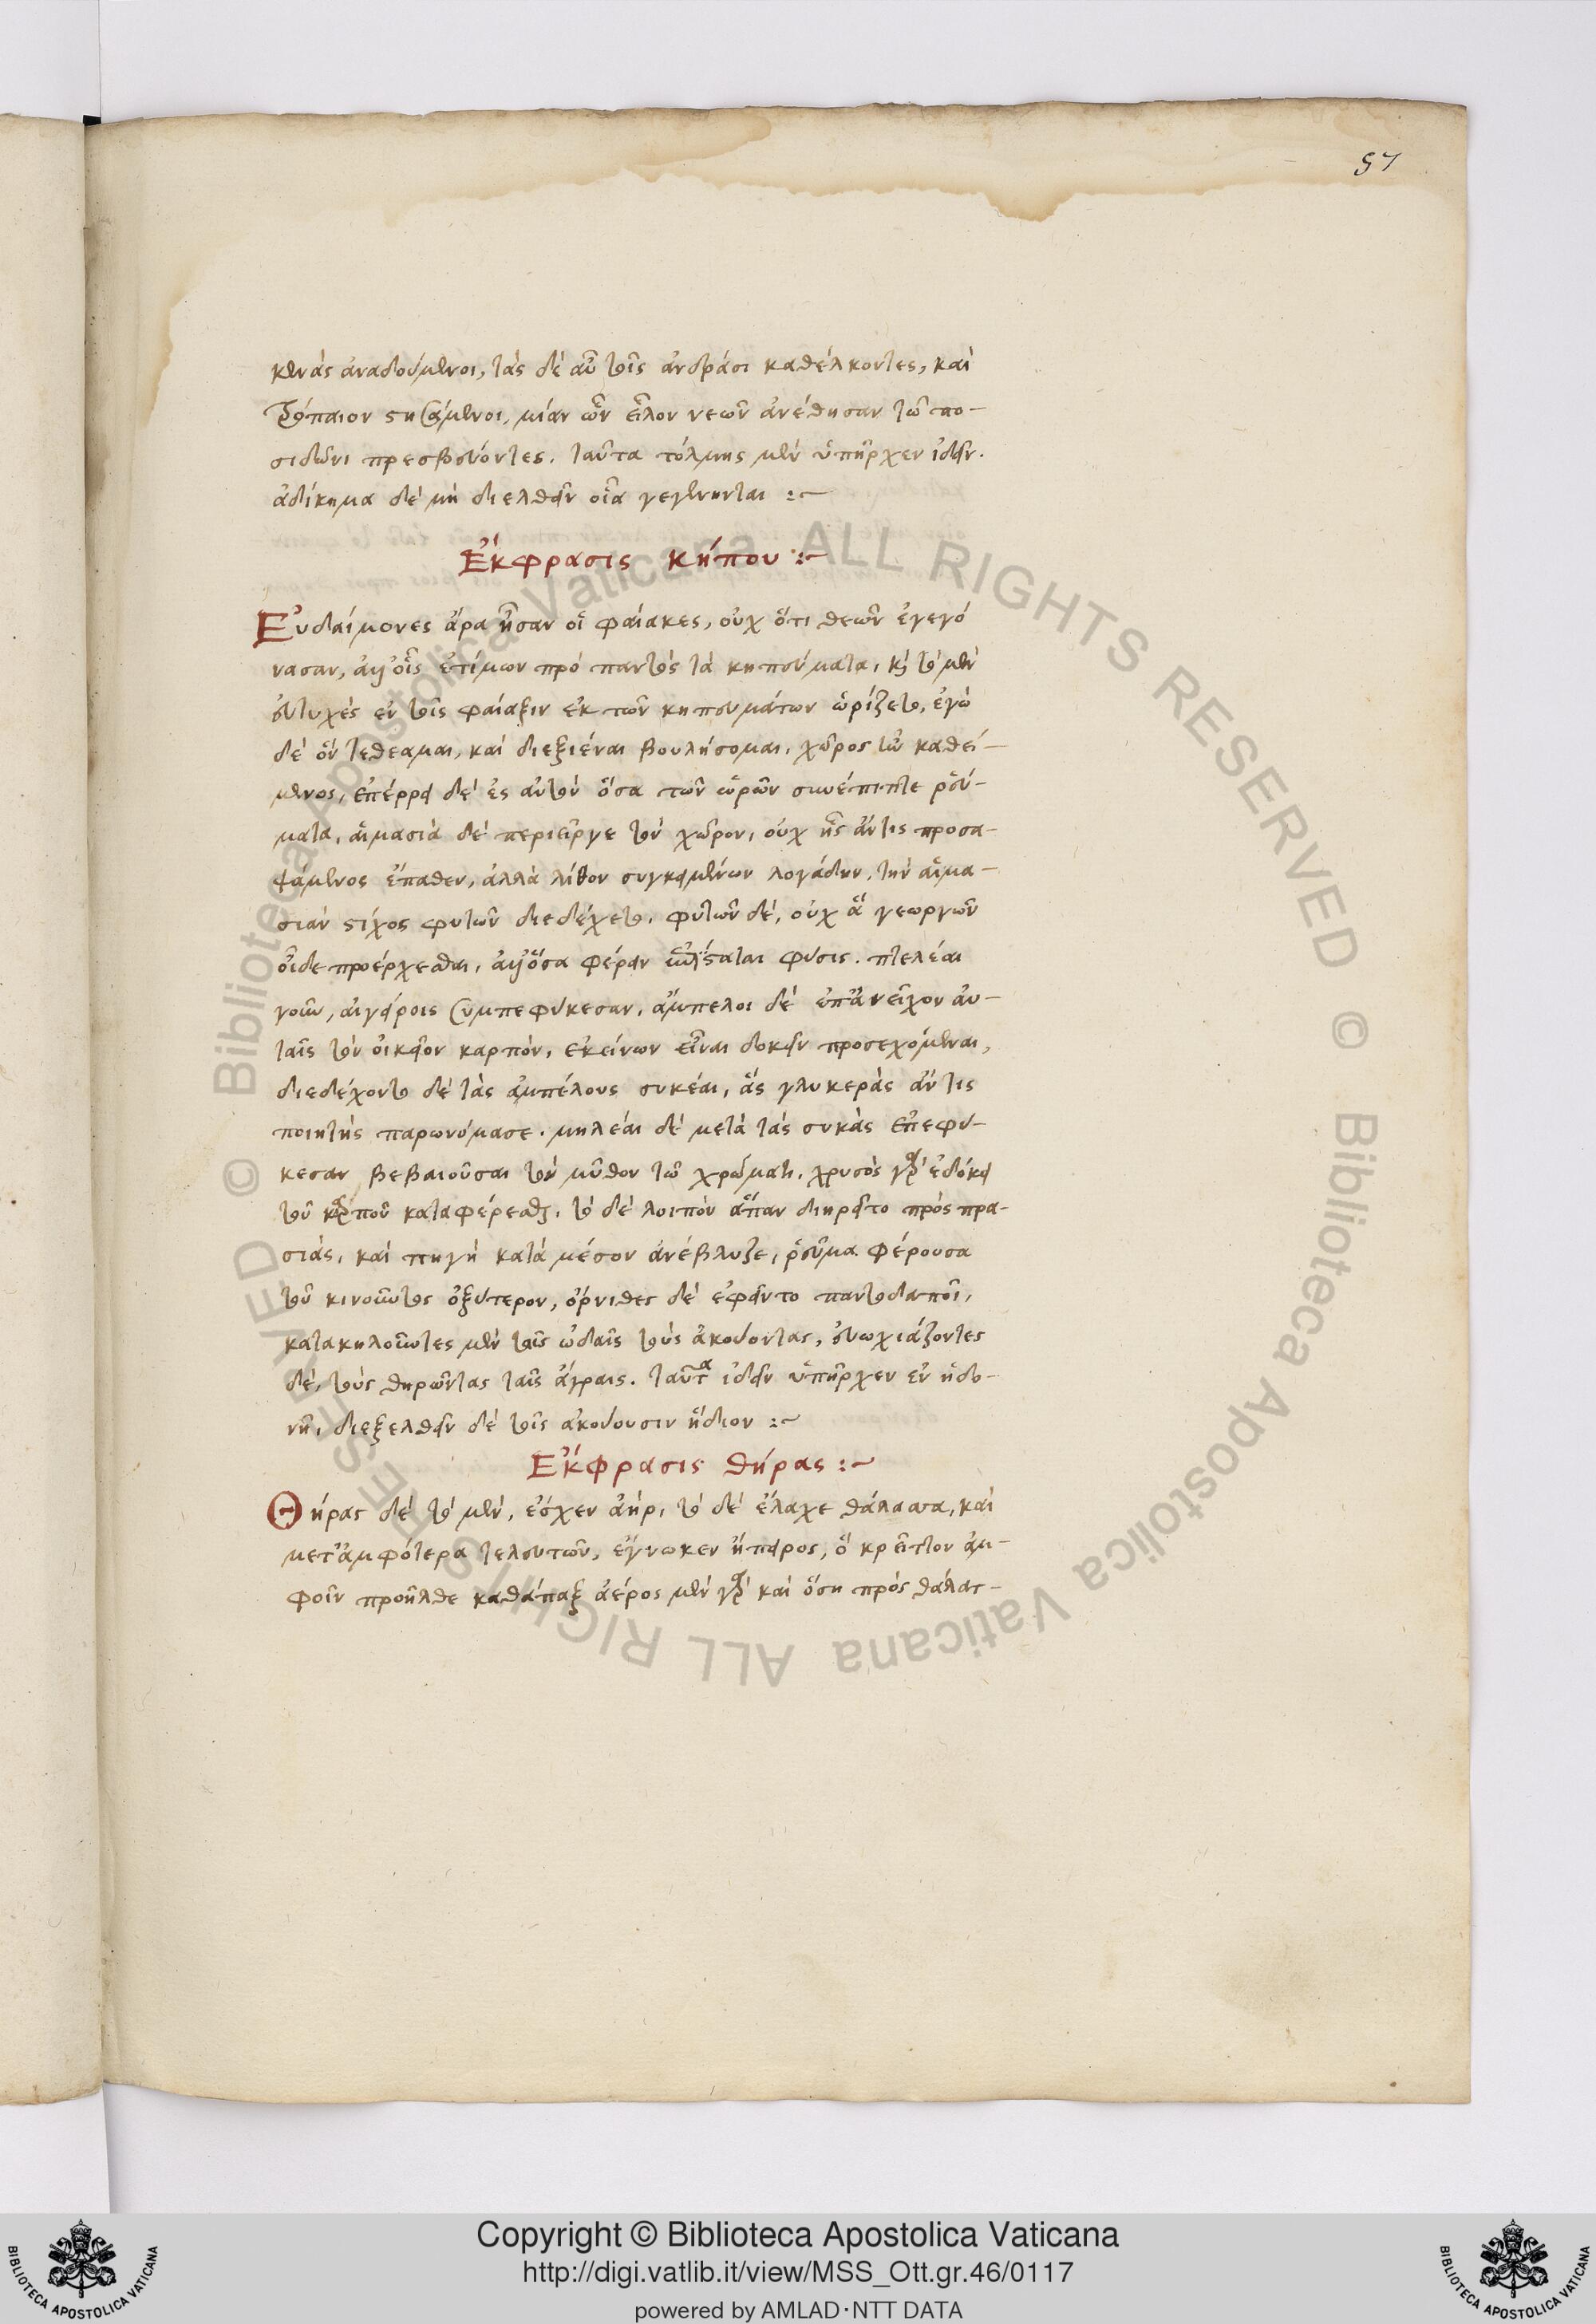 57
κενὰς ἀναδούμενοι, τὰς δὲ αὖ τοῖς ἀνδράσι καθέλκοντες, καὶ
τρόπαιον στησάμενοι, μίαν ὧν εἷλον νεῶν ἀνέθησαν τῷ πο-
σιδῶνι πρεσβεύοντες. ταῦτα τόλμης μὲν ὑπῆρχεν ἰδεῖν.
ἀδίκημα δὲ μὴ διελθεῖν οἷα γεγένηνται :~
Ἔκφρασις κήπου :~
Εὐδαίμονες ἄρα ἦσαν οἱ φαίακες, οὐχ ὅτι θεῶν ἐγεγό
νασαν, ἀλλ' οἷς ἐτίμων πρὸ παντὸς τὰ κηπεύματα, κὶ τὸ μὲν
εὐτυχὲς ἐν τοῖς φαίαξιν ἐκ τῶν κηπευμάτων ὡρίζετο, ἐγὼ
δὲ ὃν τεθέαμαι, καὶ διεξιέναι βουλήσομαι. χῶρος ἦν καθεί-
μενος, ἐπέρρει δὲ ἐς αὐτὸν ὅσα τῶν ὡρῶν συνέπιπτε ῥεύ-
ματα, αἱμασιὰ δὲ περιεῖργε τὸν χῶρον, οὐχ ἧς ἄν τις προσα-
ψάμενος ἔπαθεν, ἀλλὰ λίθον συγκειμένων λογάδην. τὴν αἱμα-
σιὰν στίχος φυτῶν διεδέχετο. φυτῶν δὲ, οὐχ ἃ γεωργῶν
οἶδε προέρχεσθαι, ἀλλ' ὅσα φέρειν ἠπίσταται φύσις. πτελέαι
γοῦν, αἰγείροις συμπεφύκεσαν, ἄμπελοι δὲ ἐπανεῖχον αὐ-
ταῖς τὸν οἰκεῖον καρπὸν, ἐκείνων εἶναι δοκεῖν προσεχόμεναι,
διεδέχοντο δὲ τὰς ἀμπέλους συκέαι, ἃς γλυκερὰς ἄν τις
ποιητὴς παρωνόμασε. μηλέαι δὲ μετὰ τὰς συκὰς ἐπεφύ-
κεσαν βεβαιοῦσαι τὸν μῦθον τῷ χρώματι. χρυσὸς γὰρ ἐδόκει
τοῦ καρποῦ καταφέρεσθαι. τὸ δὲ λοιπὸν ἅπαν διῃρεῖτο πρὸς πρα-
σιὰς, καὶ πηγὴ κατὰ μέσον ἀνέβλυζε, ῥεῦμα φέρουσα
τοῦ κινοῦντος ὀξύτερον, ὄρνιθες δὲ ἐφαίνοντο παντοδαποὶ,
κατακηλοῦντες μὲν τοῖς ᾠδαῖς τοὺς ἀκούοντας, εὐωχιάζοντες
δὲ, τοὺς θηρῶντας ταῖς ἄγραις. ταῦτα ἰδεῖν ὑπῆρχεν ἐν ἡδο-
νῇ, διεξελθεῖν δὲ τοῖς ἀκούουσιν ἥδιον :~
Ἔκφρασις θήρας :~
Θήρας δὲ τὸ μὲν, ἔσχεν ἀὴρ, τὸ δὲ ἔλαχε θάλασσα, καὶ
μετ' ἀμφότερα τελευτῶν, ἔγνωκεν ἤπειρος, ὃ κρεῖττον ἀμ-
φοῖν προῆλθε καθάπαξ ἀέρος μὲν γὰρ καὶ ὅση πρὸς θάλατ-
Copyright © Biblioteca Apostolica Vaticana
http://digi.vatlib.it/view/MSS_Ott.gr.46/0117
powered by AMLAD·NTT DATA
BIBLIOTECA APOSTOLICA VATICANA
BIBLIOTECA APOSTOLICA VATICANA
© Biblioteca Apostolica Vaticana ALL RIGHTS RESERVED © Biblioteca Apostolica Vaticana ALL RIGHTS RESERVED